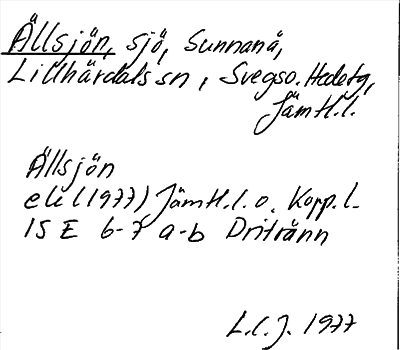 Ällsjön, sjö, Sunnanå,
Lillhärdals sn, Svegs o. Hedetg,
Jämtl. l.
Ällsjön
ek (1977) Jämtl. l. o. Kopp. l.
15 E 6-7 a-b Dritränn
L. C. J. 1977